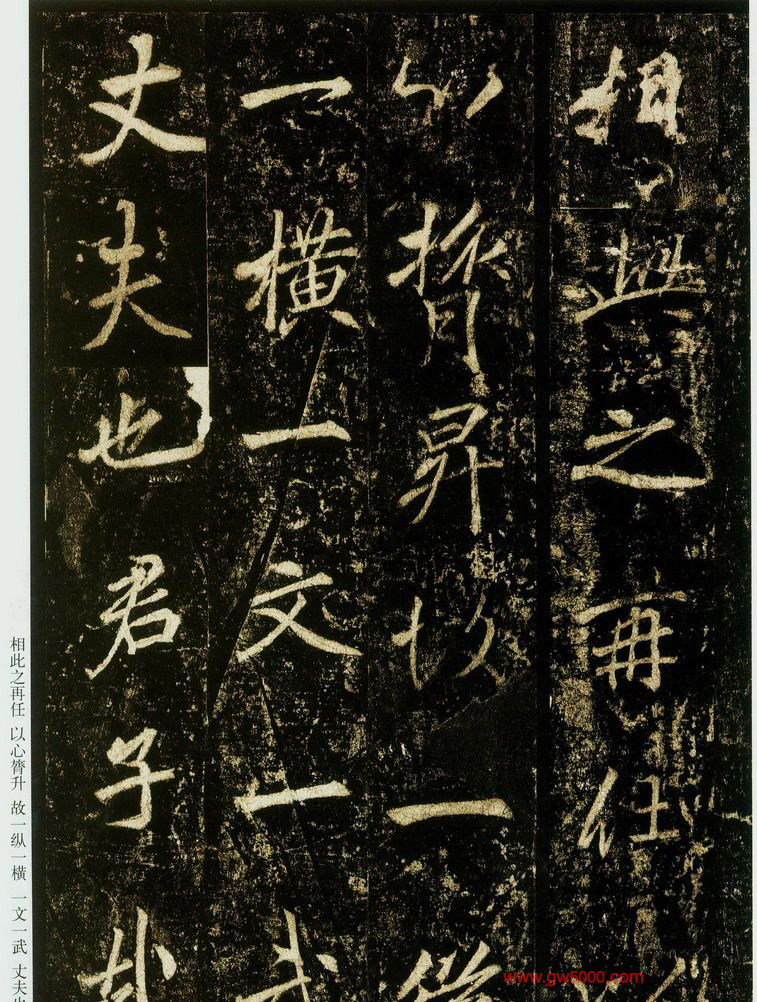 相此之再任以
心膂昇故一縱
一横一文一武
丈夫也君子哉
相此之再任 以心膂升 故一纵一横 一文一武 丈夫也
www.gw5000.com